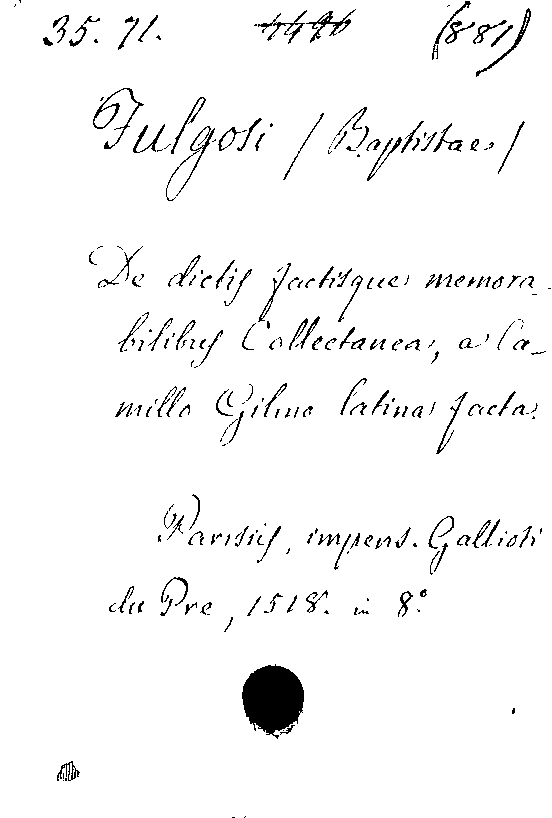 35. 71. (881)
Fulgosi / Baptistae /
De dictis factisque memora-
bilibus Collectanea, a Ca-
millo Gilino latina facta.
Parisiis, impens. Gallioti
du Pre, 1518. in 8°.